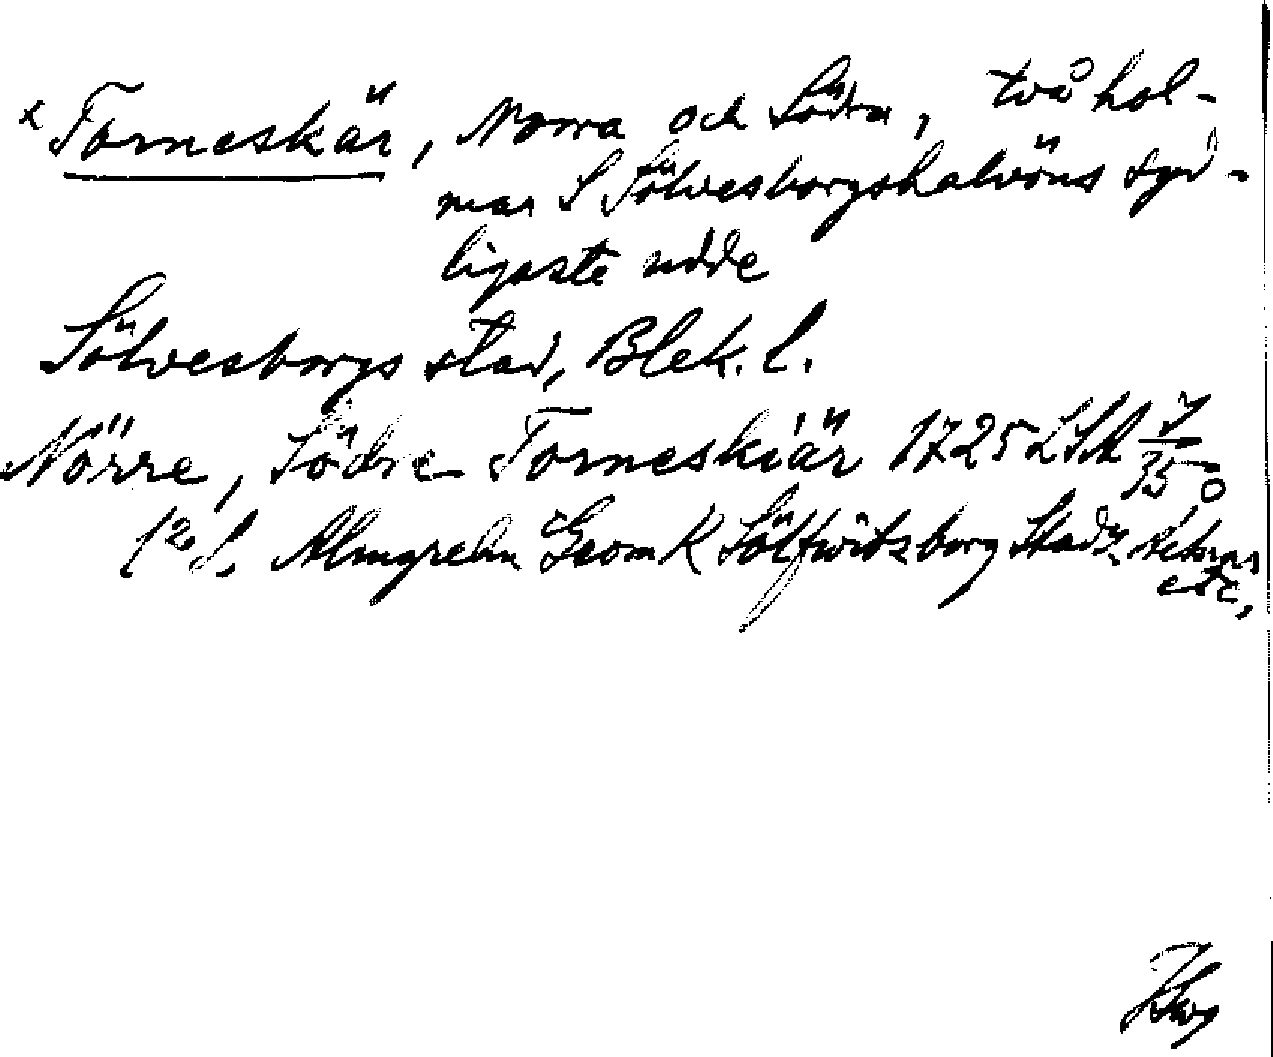 x Torneskär, Norra och Södra, två hol-
mar S Sölvesborgshalvöns syd-
ligaste udde
Sölvesborgs stad, Blek. l.
Nörre, Södre Torneskiär 1725 LSA 7/35
L. Almgrehn Geom K Sölfwitzborg Stadz
etc,